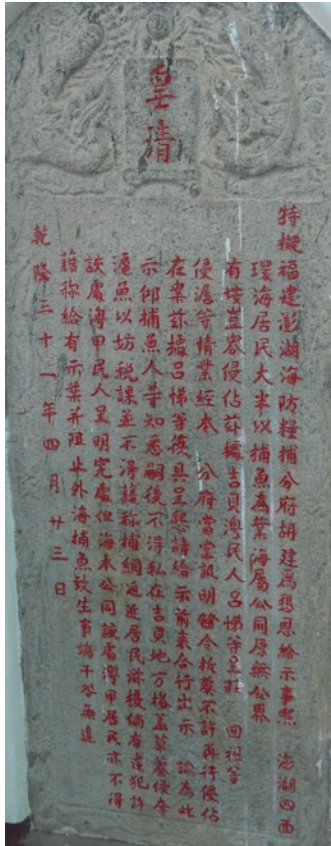 皇清
特授福建澎湖海防糧捕分府胡建為懇恩給示事照 澎湖四面
環海居民大半以捕魚為業海屬公同原無分界
有按豈容侵佔茲據吉貝灣民人呂悌等呈控 回祖等
侵滬等情業經本 分府當堂訊明飭令拆藔不許再行侵佔
在案茲據呂悌等復具呈懇請給示前來合行出示 諭為此
示仰捕魚人等知悉嗣後不得私在吉貝地方搭蓋草藔侵佔
滬魚以妨稅課並不得藉稱捕網逼近居民滋擾倘有違犯許
該處灣甲民人呈明究處但海本公同該處灣甲居民亦不得
藉稱給有示禁并阻止外海捕魚致生事端干咎毋違
乾隆三十一年四月廿三日